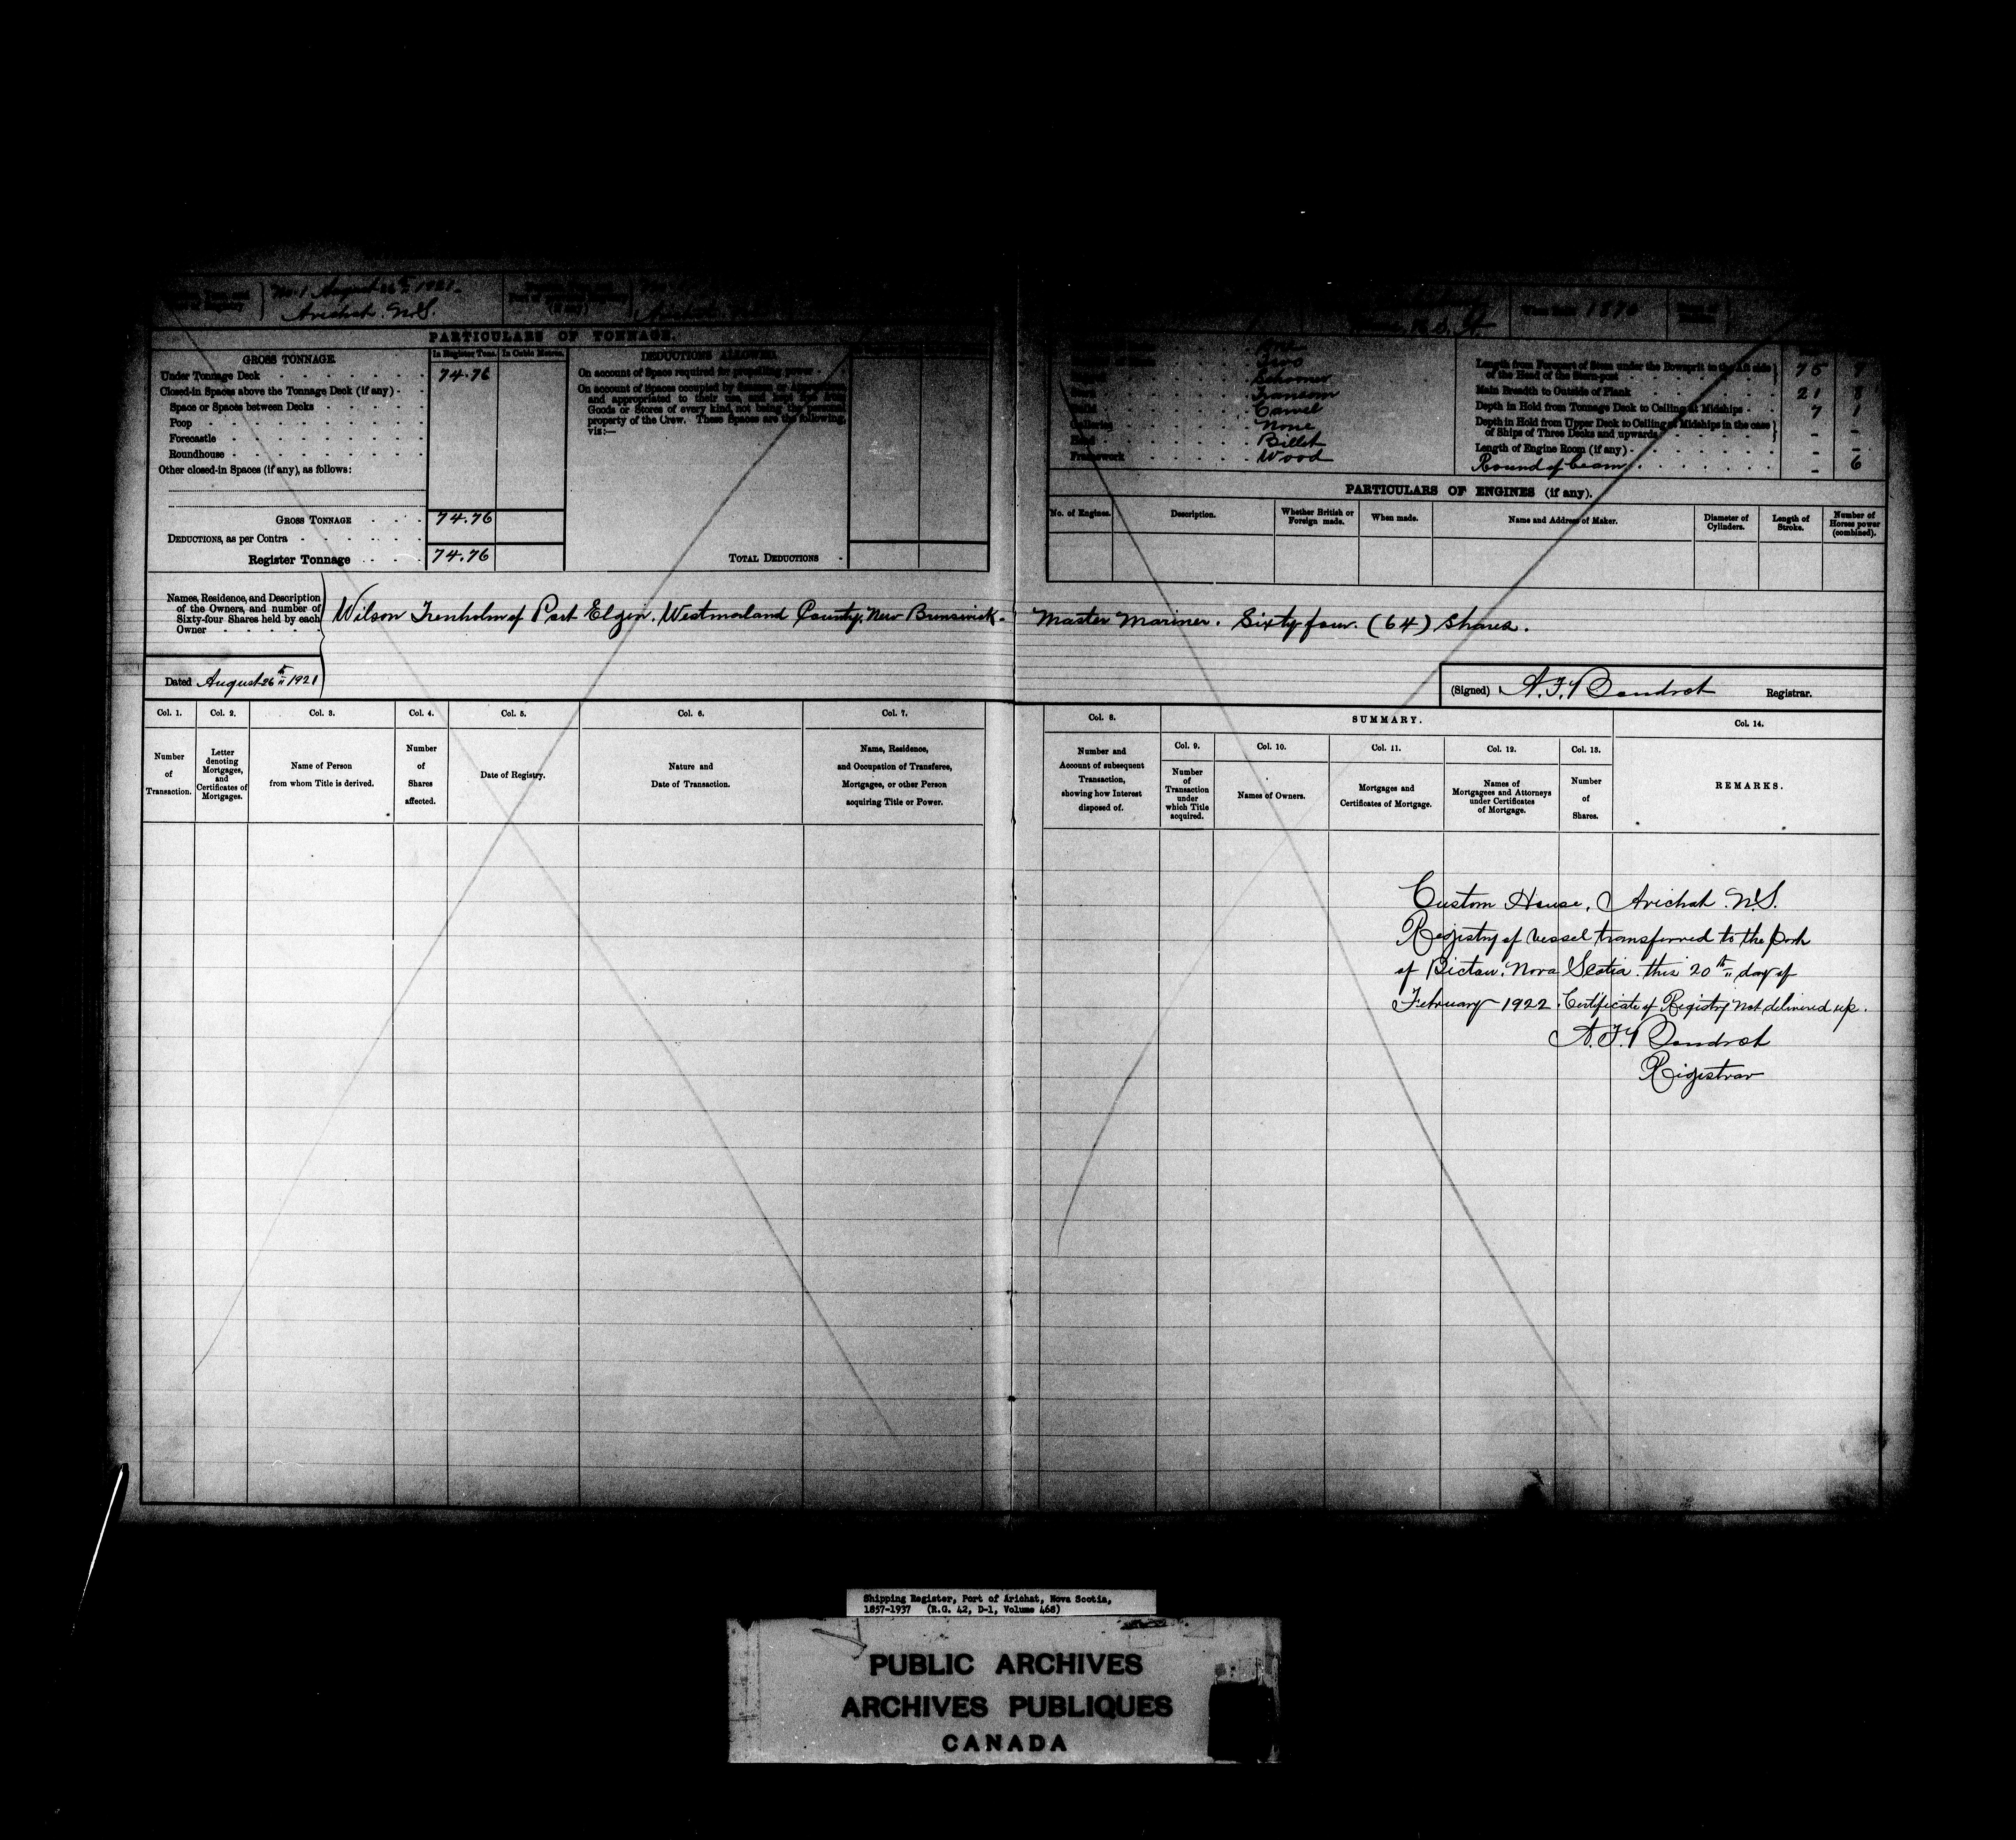 No. 1 August 26th 1921.
Arichat N.S.
(if any)
Arichat
U.S.A.
1876
PARTICULARS OF TONNAGE.
GROSS TONNAGE.
In Register Tons.
In Cubic Metres.
DEDUCTIONS ALLOWED.
Under Tonnage Deck
74.76
Closed-in Spaces above the Tonnage Deck (if any)
Space or Spaces between Decks
Poop
Forecastle
Roundhouse
Other closed-in Spaces (if any), as follows:
GROSS TONNAGE
74.76
DEDUCTIONS, as per Contra
Register Tonnage
74.76
On account of Space required for propelling power
On account of Spaces occupied by Seamen or Apprentices,
and appropriated to their use, and kept free from
Goods or Stores of every kind, not being the personal
property of the Crew. These Spaces are the following,
viz:—
TOTAL DEDUCTIONS
One
Two
Schooner
Transom
Carvel
Galleries
None
Head
Billet
Framework
Wood
Length from Forepart of Stem under the Bowsprit to the Aft side
of the Head of the Stern-post
75
Main Breadth to Outside of Plank
21 8
Depth in Hold from Tonnage Deck to Ceiling at Midships
7 1
Depth in Hold from Upper Deck to Ceiling at Midships in the case
of Ships of Three Decks and upwards
- -
Length of Engine Room (if any)
- -
Round of beam
- 6
PARTICULARS OF ENGINES (if any).
No. of Engines.
Description.
Whether British or
Foreign made.
When made.
Name and Address of Maker.
Diameter of
Cylinders.
Length of
Stroke.
Number of
Horses power
(combined).
Names, Residence, and Description
of the Owners, and number of
Sixty-four Shares held by each
Owner
Wilson Trenholm of Port Elgin, Westmorland County, New Brunswick. Master Mariner. Sixty four (64) Shares.
Dated August 26th 1921
(Signed) A.F. Boudrot Registrar.
Col. 1.
Col. 2.
Col. 3.
Col. 4.
Col. 5.
Col. 6.
Col. 7.
Number
of
Transaction.
Letter
denoting
Mortgages,
and
Certificates of
Mortgages.
Name of Person
from whom Title is derived.
Number
of
Shares
affected.
Date of Registry.
Nature and
Date of Transaction.
Name, Residence,
and Occupation of Transferee,
Mortgagee, or other Person
acquiring Title or Power.
Col. 8.
Number and
Account of subsequent
Transaction,
showing how Interest
disposed of.
SUMMARY.
Col. 9.
Number
of
Transaction
under
which Title
acquired.
Col. 10.
Names of Owners.
Col. 11.
Mortgages and
Certificates of Mortgage.
Col. 12.
Names of
Mortgagees and Attorneys
under Certificates
of Mortgage.
Col. 13.
Number
of
Shares.
Col. 14.
REMARKS.
Custom House, Arichat N.S.
Registry of vessel transferred to the Port
of Pictou, Nova Scotia this 20th day of
February 1922. Certificate of Registry not delivered up.
A.F. Boudrot
Registrar
Shipping Register, Port of Arichat, Nova Scotia,
1857-1937 (R.G. 42, D-1, Volume 468)
PUBLIC ARCHIVES
ARCHIVES PUBLIQUES
CANADA